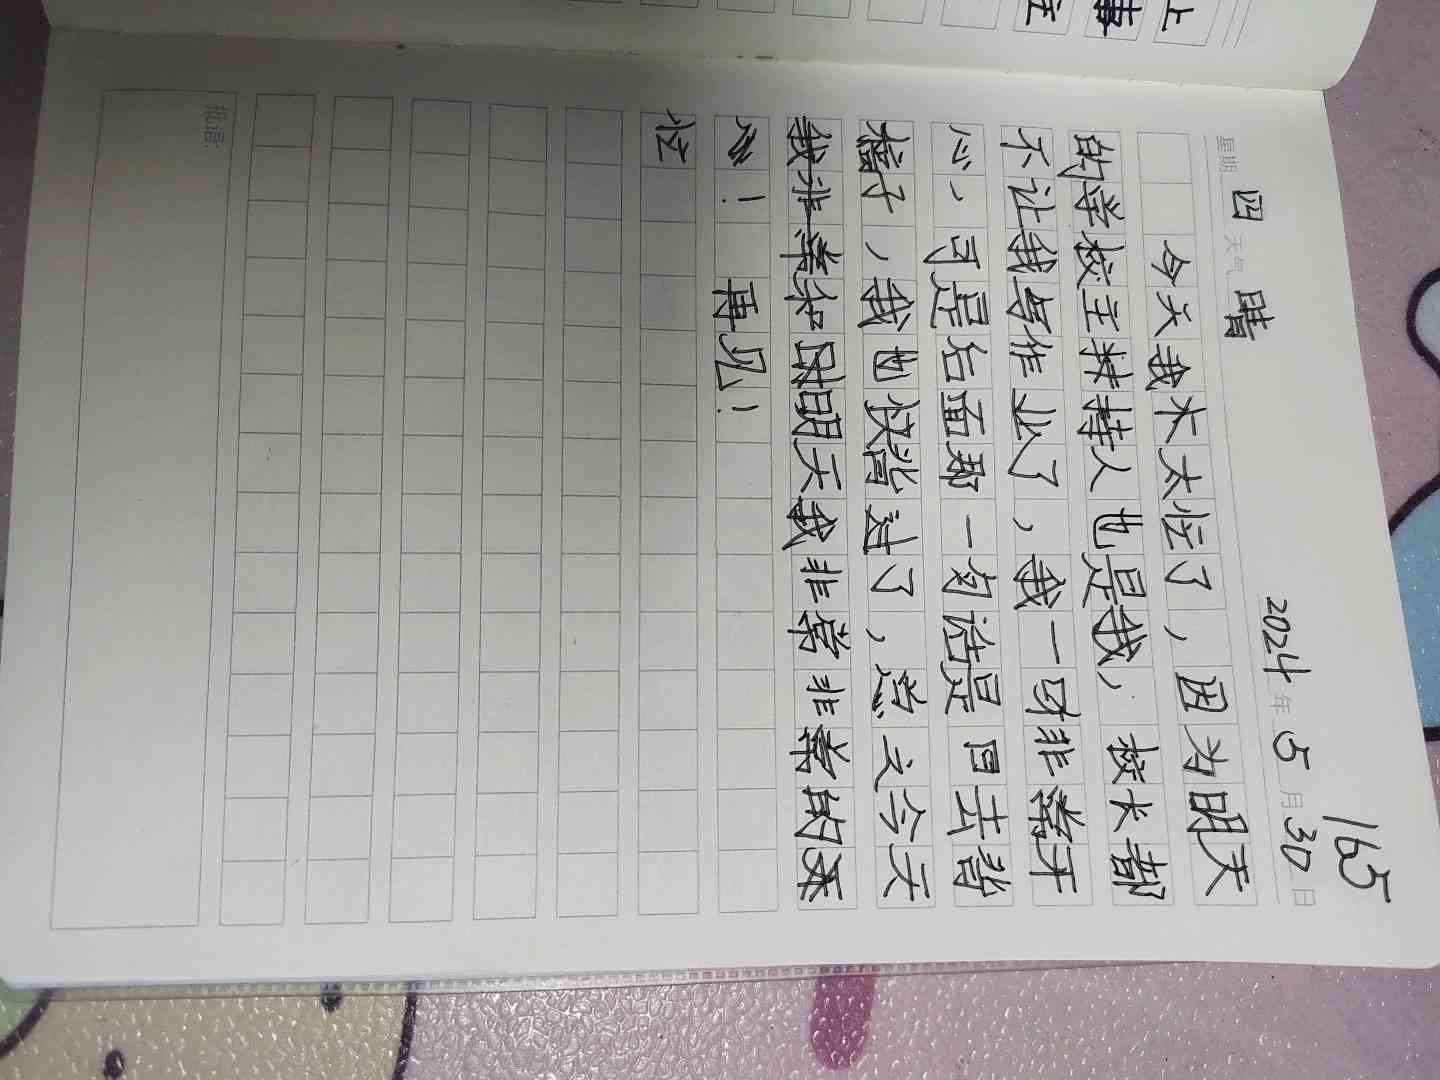 165
2024年5月30日
星期 四 天气 晴
今天我太太忙了，因为明天
的学校主持人也是我，校长都
不让我写作业了，我一时非常开
心，可是后面那一句话是回去背
稿子，我也快背过了，总之今天
我非常和明天我非常非常的
！ 再见！
忙
批语: